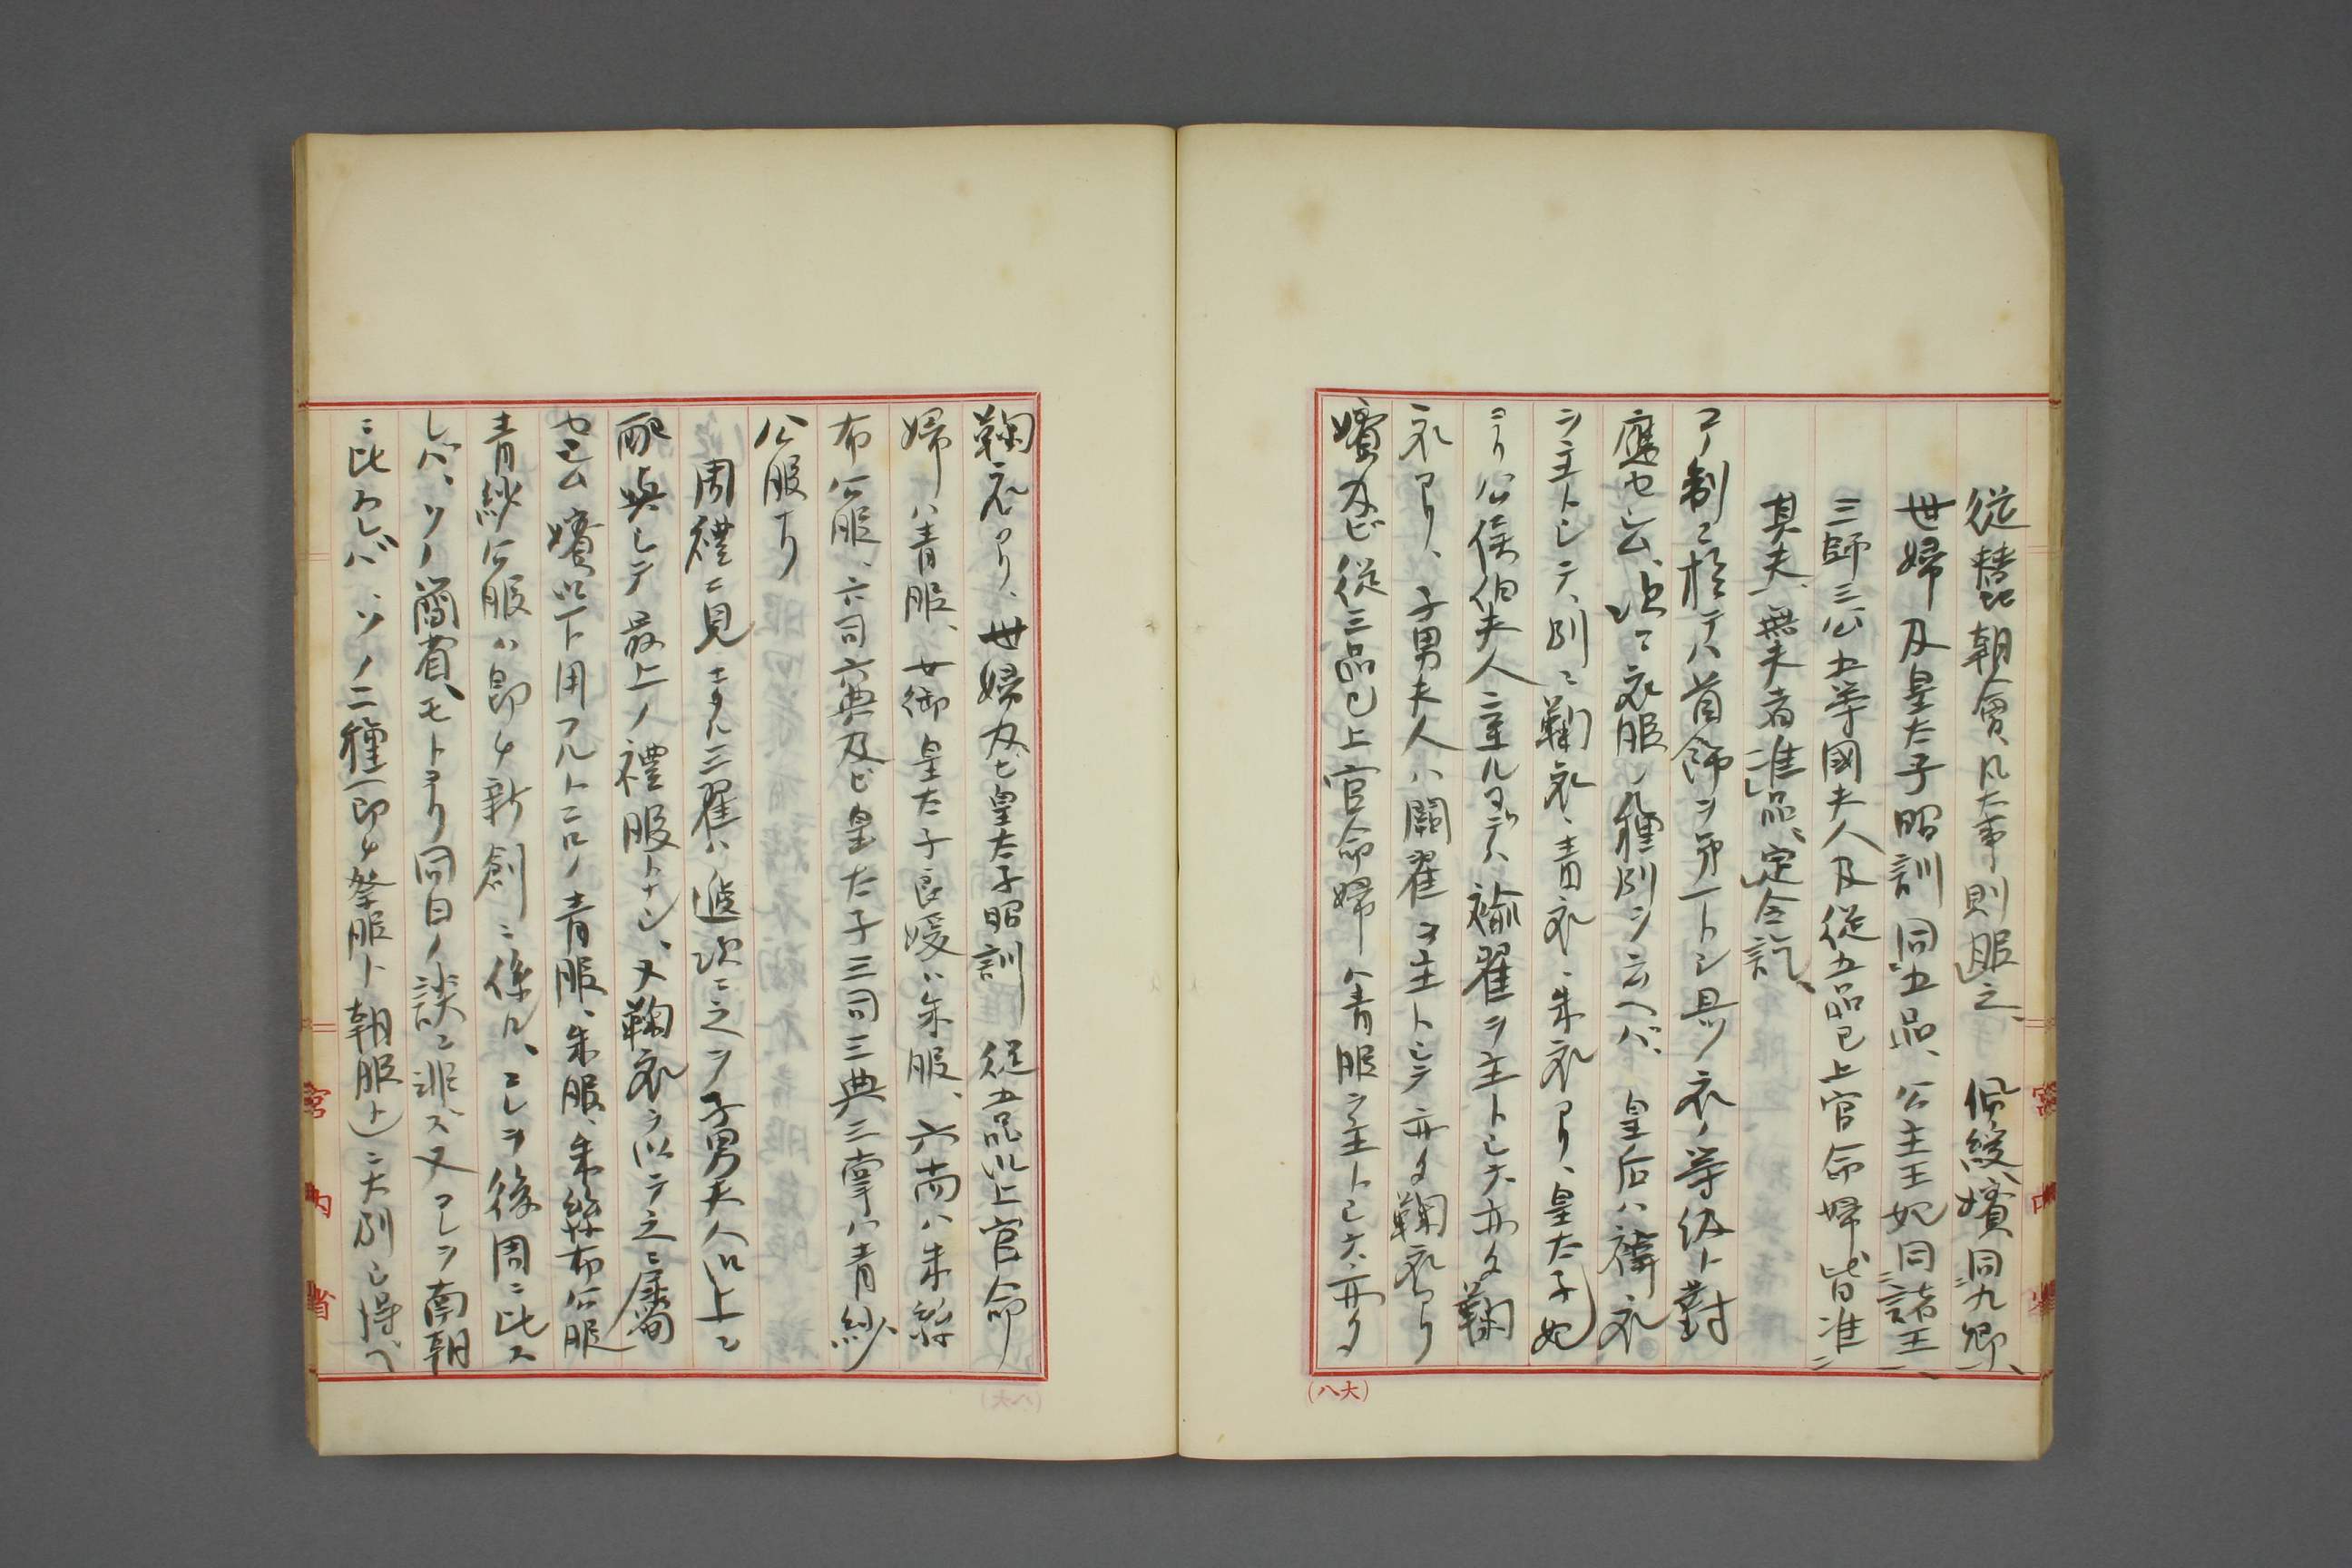 從蠶朝會、凡大事則服之、佩綬嬪同九卿、
世婦及皇太子昭訓同五品、公主王妃同諸王、
三師三公五等國夫人及從五品已上官命婦皆准
其夫、無夫者准品、定令訖、
コノ制ニ於テハ首飾ヲ第一トシ且ツ衣ノ等級ト對
應セシム、次ニ衣服ノ種別ヲ云ヘバ、皇后ハ褘衣
ヲ主トシテ、別ニ鞠衣、青衣、朱衣アリ、皇太子妃
ヨリ公侯伯夫人ニ至ルマデハ褕翟ヲ主トシテ、亦タ鞠
衣アリ、子男夫人ハ闕翟ヲ主トシテ亦タ鞠衣アリ
嬪及ビ從三品已上官命婦ハ青服ヲ主トシテ、亦タ
鞠衣アリ、世婦及ビ皇太子昭訓從五品以上官命
婦ハ青服、女御皇太子良媛ハ朱服、六尚ハ朱絲
布公服、六司六典及ビ皇太子三司三典三掌ハ青紗
公服ナリ
周禮ニ見エタル三翟ハ遞次ニ之ヲ子男夫人以上ニ
配與シテ最上ノ禮服トナシ、又鞠衣ヲ以テ之ニ屬
セシム嬪以下ト用フルトコロノ青服、朱服、朱絲布公服
青紗公服ハ即チ新創ニ係ル、コレヲ後周ニ比ス
レバ、ソノ簡省、モトヨリ同日ノ談ニ非ズ又コレヲ南朝
ニ比スレバ、ソノ二種即チ祭服ト朝服トニ大別シ得ベ
(大八)
宮内省